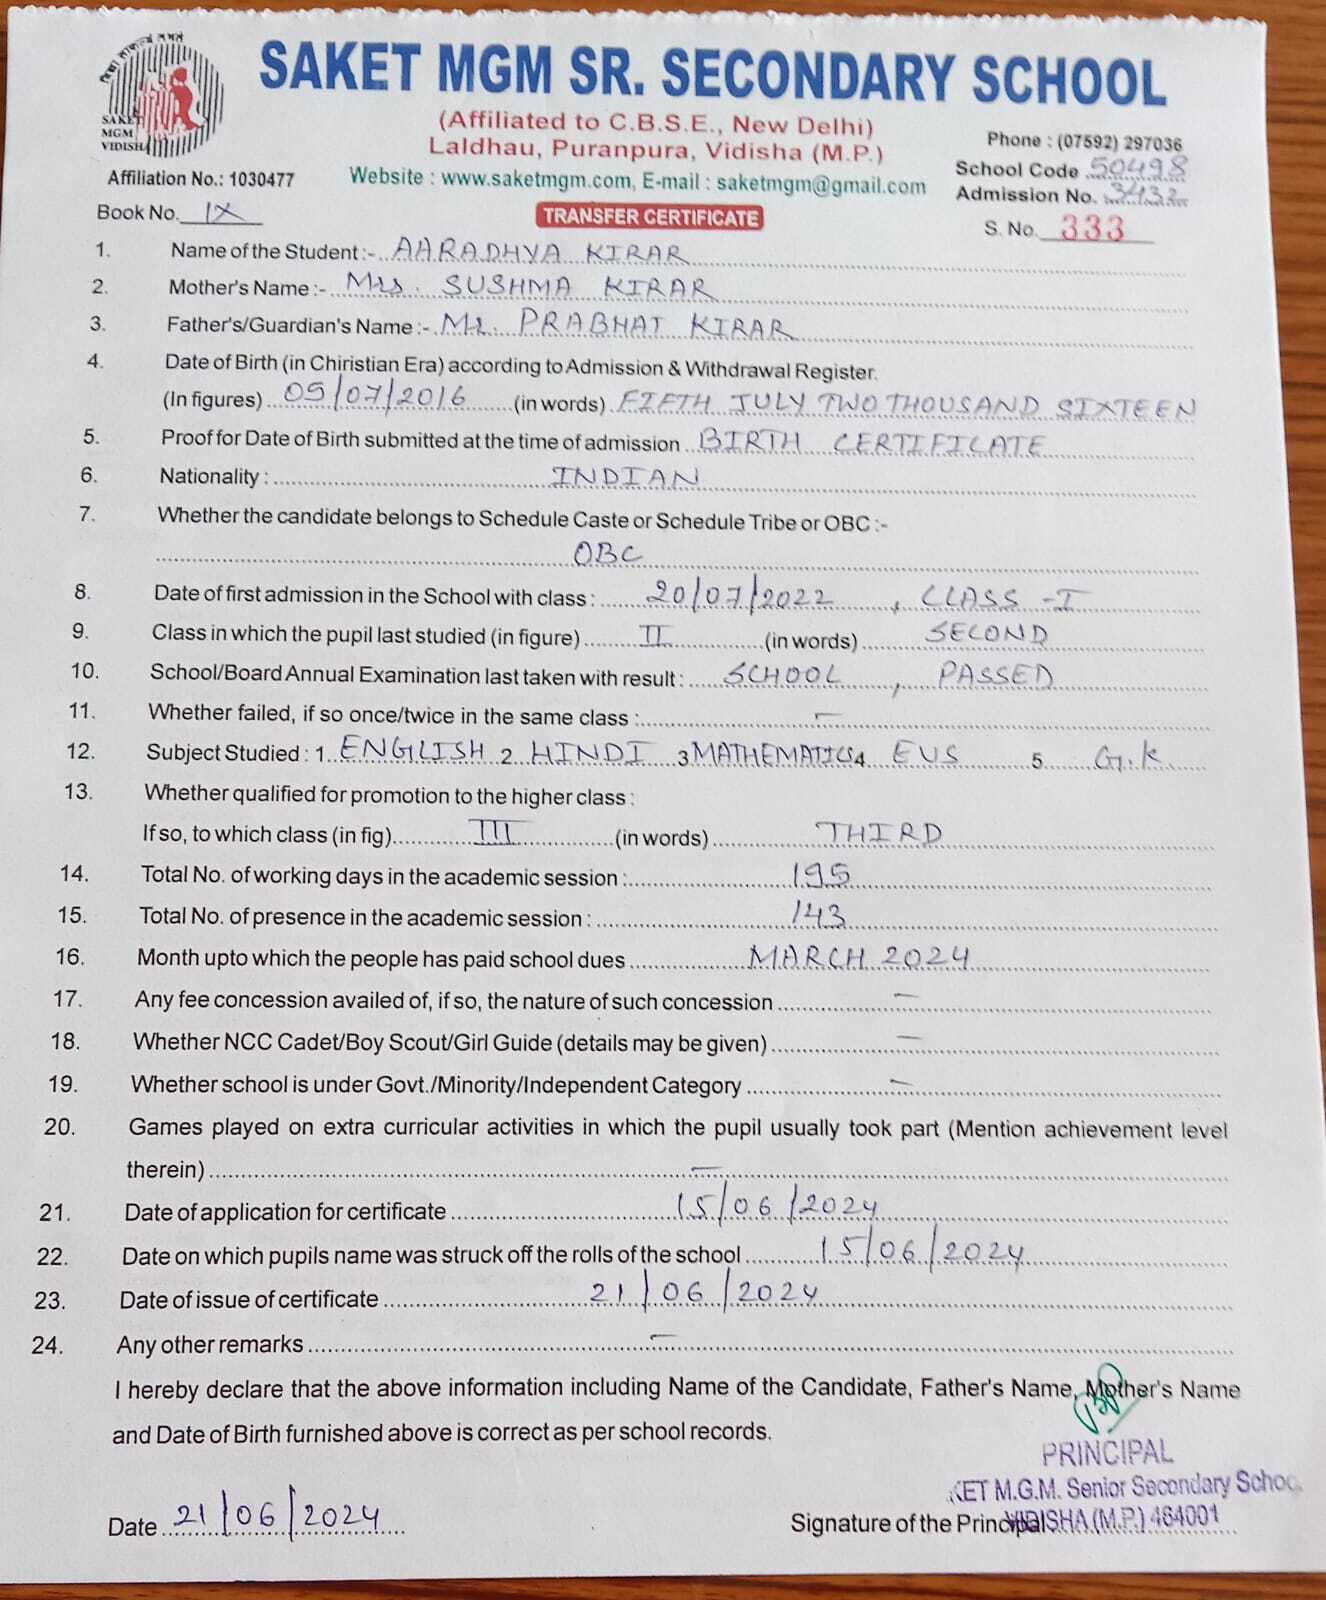 SAKET MGM SR. SECONDARY SCHOOL
SAKET
MGM
VIDISHA
(Affiliated to C.B.S.E., New Delhi)
Laldhau, Puranpura, Vidisha (M.P.)
Phone : (07592) 297036
Affiliation No.: 1030477
Website : www.saketmgm.com, E-mail : saketmgm@gmail.com
School Code 50498
Admission No. 3432
Book No. IX
TRANSFER CERTIFICATE
S. No. 333
1. Name of the Student :- AARADHYA KIRAR
2. Mother's Name :- Mrs. SUSHMA KIRAR
3. Father's/Guardian's Name :- Mr. PRABHAT KIRAR
4. Date of Birth (in Chiristian Era) according to Admission & Withdrawal Register.
(In figures) 05/07/2016 (in words) FIFTH JULY TWO THOUSAND SIXTEEN
5. Proof for Date of Birth submitted at the time of admission BIRTH CERTIFICATE
6. Nationality : INDIAN
7. Whether the candidate belongs to Schedule Caste or Schedule Tribe or OBC :-
OBC
8. Date of first admission in the School with class : 20/07/2022 , CLASS - I
9. Class in which the pupil last studied (in figure) II (in words) SECOND
10. School/Board Annual Examination last taken with result : SCHOOL , PASSED
11. Whether failed, if so once/twice in the same class : -
12. Subject Studied : 1. ENGLISH 2 HINDI 3 MATHEMATICS 4 EVS 5 G.K.
13. Whether qualified for promotion to the higher class :
If so, to which class (in fig) III (in words) THIRD
14. Total No. of working days in the academic session : 195
15. Total No. of presence in the academic session : 143
16. Month upto which the people has paid school dues MARCH 2024
17. Any fee concession availed of, if so, the nature of such concession -
18. Whether NCC Cadet/Boy Scout/Girl Guide (details may be given) -
19. Whether school is under Govt./Minority/Independent Category -
20. Games played on extra curricular activities in which the pupil usually took part (Mention achievement level
therein) -
21. Date of application for certificate 15/06/2024
22. Date on which pupils name was struck off the rolls of the school 15/06/2024
23. Date of issue of certificate 21/06/2024
24. Any other remarks -
I hereby declare that the above information including Name of the Candidate, Father's Name, Mother's Name
and Date of Birth furnished above is correct as per school records.
PRINCIPAL
KET M.G.M. Senior Secondary School
VIDISHA (M.P.) 464001
Date 21/06/2024
Signature of the Principal